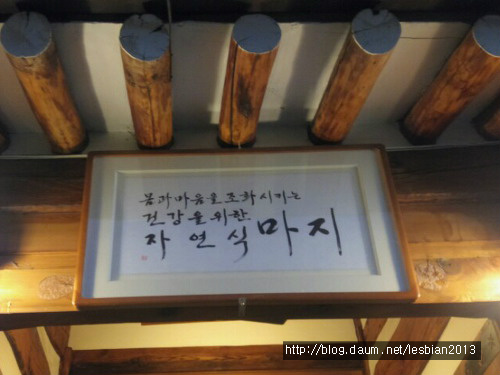 몸과마음을조화시키는
건강을위한
자연식마지
http://blog.daum.net/lesbian2013